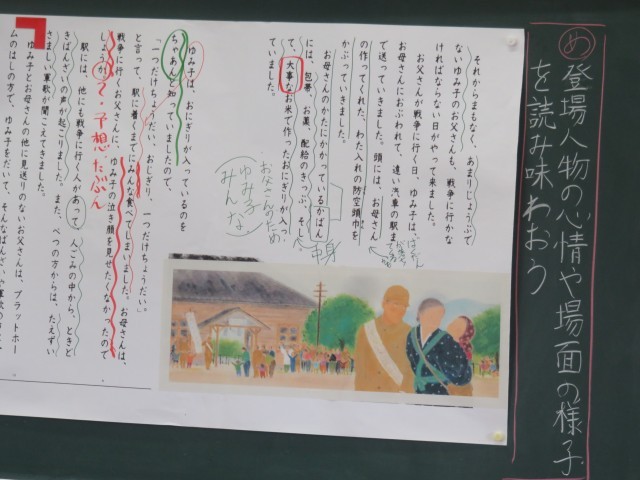 め 登場人物の心情や場面の様子
を読み味わおう
それからまもなく、あまりじょうぶで
ないゆみ子のお父さんも、戦争に行かな
ければならない日がやって来ました。
お父さんが戦争に行く日、ゆみ子は、
お母さんにおぶわれて、遠い汽車の駅ま
で送っていきました。頭には、お母さん
の作ってくれた、わた入れの防空頭巾を
かぶっていきました。
お母さんのかたにかかっているかばん
には、包帯、お薬、配給のきっぷ、そし
て、大事なお米で作ったおにぎりが入っ
ていました。
中身
お父さんのため
ゆみ子
みんな
ゆみ子は、おにぎりが入っているのを
ちゃあんと知っていましたので、
「一つだけちょうだい、おじぎり一つだけちょうだい。」
と言って、駅に着くまでにみんな食べてしまいました。お母さんは、
戦争に行くお父さんに、ゆみ子の泣き顔を見せたくなかったので
しょうか。
?・予想・たぶん
駅には、他にも戦争に行く人があって、人ごみの中から、ときど
きばんざいの声が起こりました。また、べつの方からは、たえずい
さましい軍歌が聞こえてきました。
ゆみ子とお母さんの他に見送りのないお父さんは、プラットホー
ムのはしの方で、ゆみ子をだいて、そんなばんざいや軍歌の